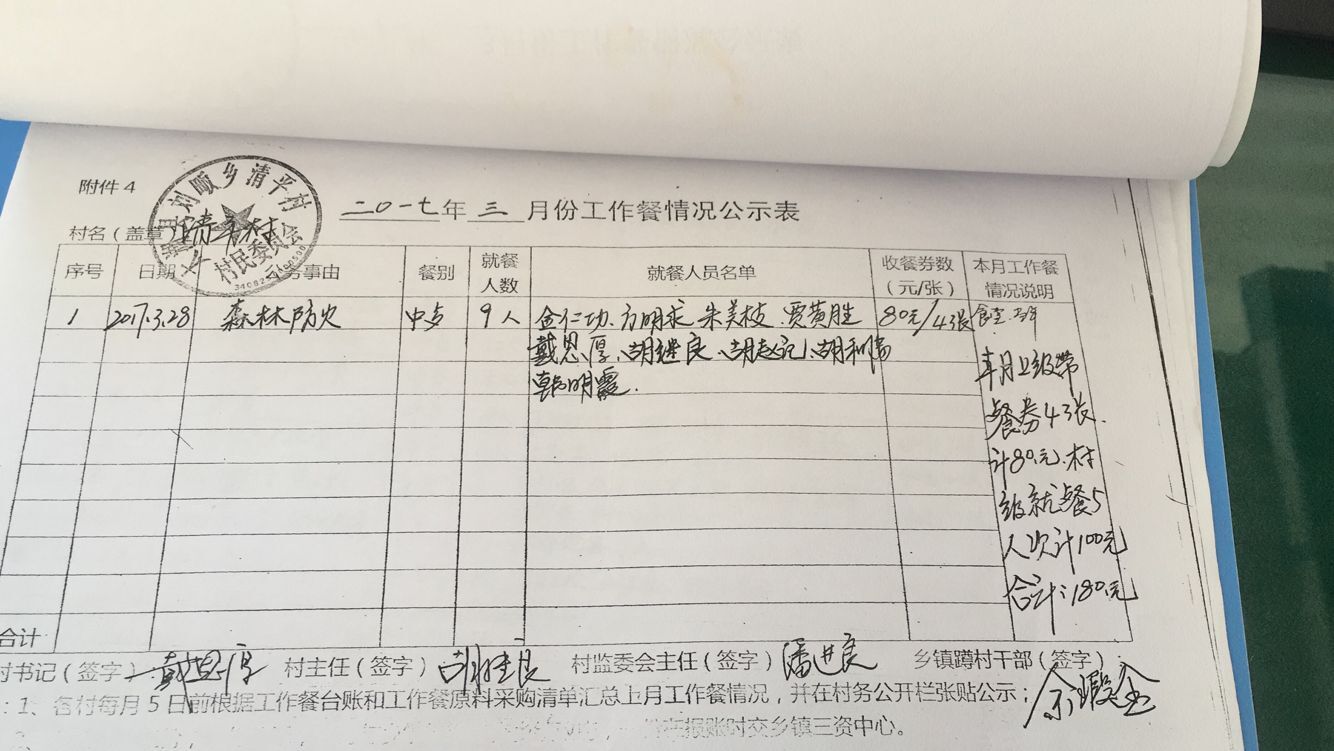 附件4
刘畈乡清平村
村民委员会
二〇一七年三月份工作餐情况公示表
村名(盖章) 清平村
序号 日期 事由 餐别 就餐人数 就餐人员名单 收餐券数(元/张) 本月工作餐情况说明
1 2017.3.28 森林防火 中餐 9人 金仁功、方明求、朱美枝、贾黄胜 80元/4张
戴思厚、胡继良、胡赵记、胡利
韩明霞.
本月上级带
餐券4张.
计80元.村
级就餐5
人次计100元
合计:180元
合计
村书记(签字) 戴思厚 村主任(签字) 胡继良 村监委会主任(签字) 潘进良 乡镇蹲村干部(签字)
:1、各村每月5日前根据工作餐台账和工作餐原料采购清单汇总上月工作餐情况,并在村务公开栏张贴公示;
报账时交乡镇三资中心。